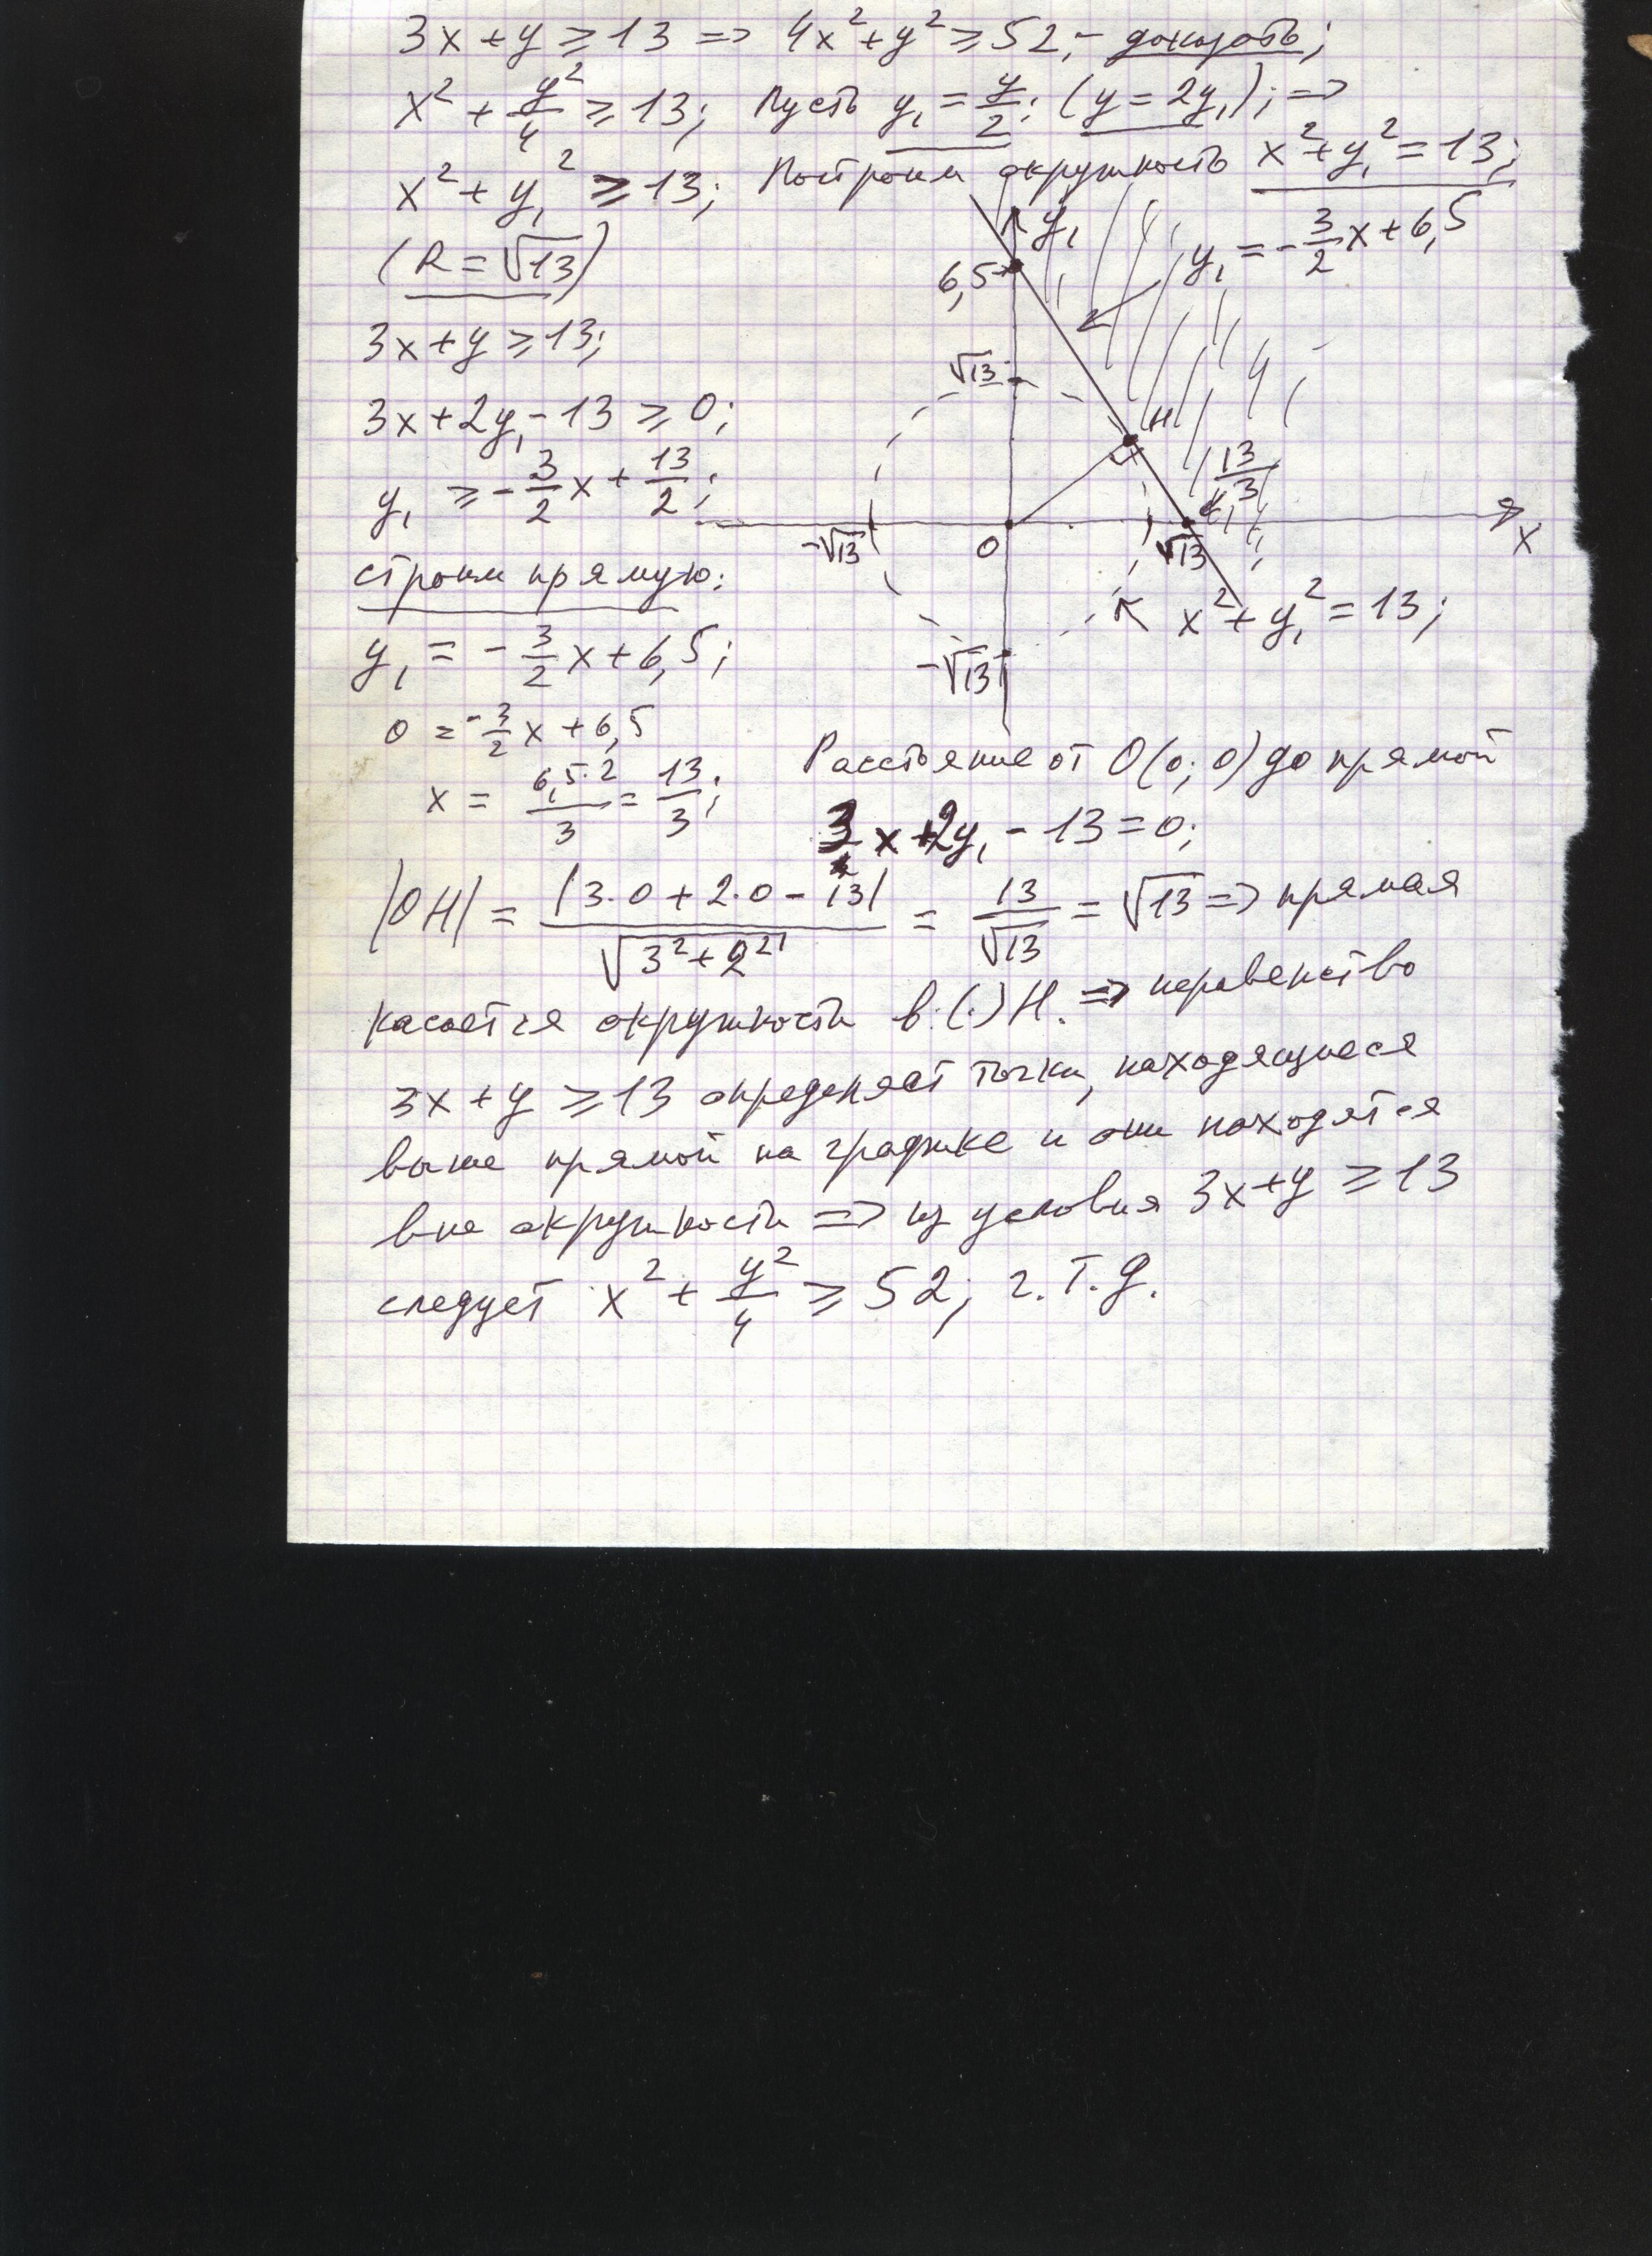 3x + y ≥ 13 => 4x² + y² ≥ 52, - доказать;
x² + y²/4 ≥ 13; Пусть y₁ = y/2; (y = 2y₁); =>
x² + y₁² ≥ 13; Построим окружность x² + y₁² = 13;
(R = √13)
3x + y ≥ 13;
3x + 2y₁ - 13 ≥ 0;
y₁ ≥ - 3/2 x + 13/2;
строим прямую:
y₁ = - 3/2 x + 6,5;
0 = - 3/2 x + 6,5
x = 6,5·2/3 = 13/3;
y₁
y₁ = - 3/2 x + 6,5
6,5
√13
H
13/3
-√13
O
√13
x
-√13
x² + y₁² = 13;
Расстояние от O(0; 0) до прямой
3x + 2y₁ - 13 = 0;
|OH| = |3·0 + 2·0 - 13| / √(3² + 2²) = 13/√13 = √13 => прямая
касается окружности в (·) H. => неравенство
3x + y ≥ 13 определяет точки, находящиеся
выше прямой на графике и они находятся
вне окружности => из условия 3x + y ≥ 13
следует x² + y²/4 ≥ 52; ч.т.д.